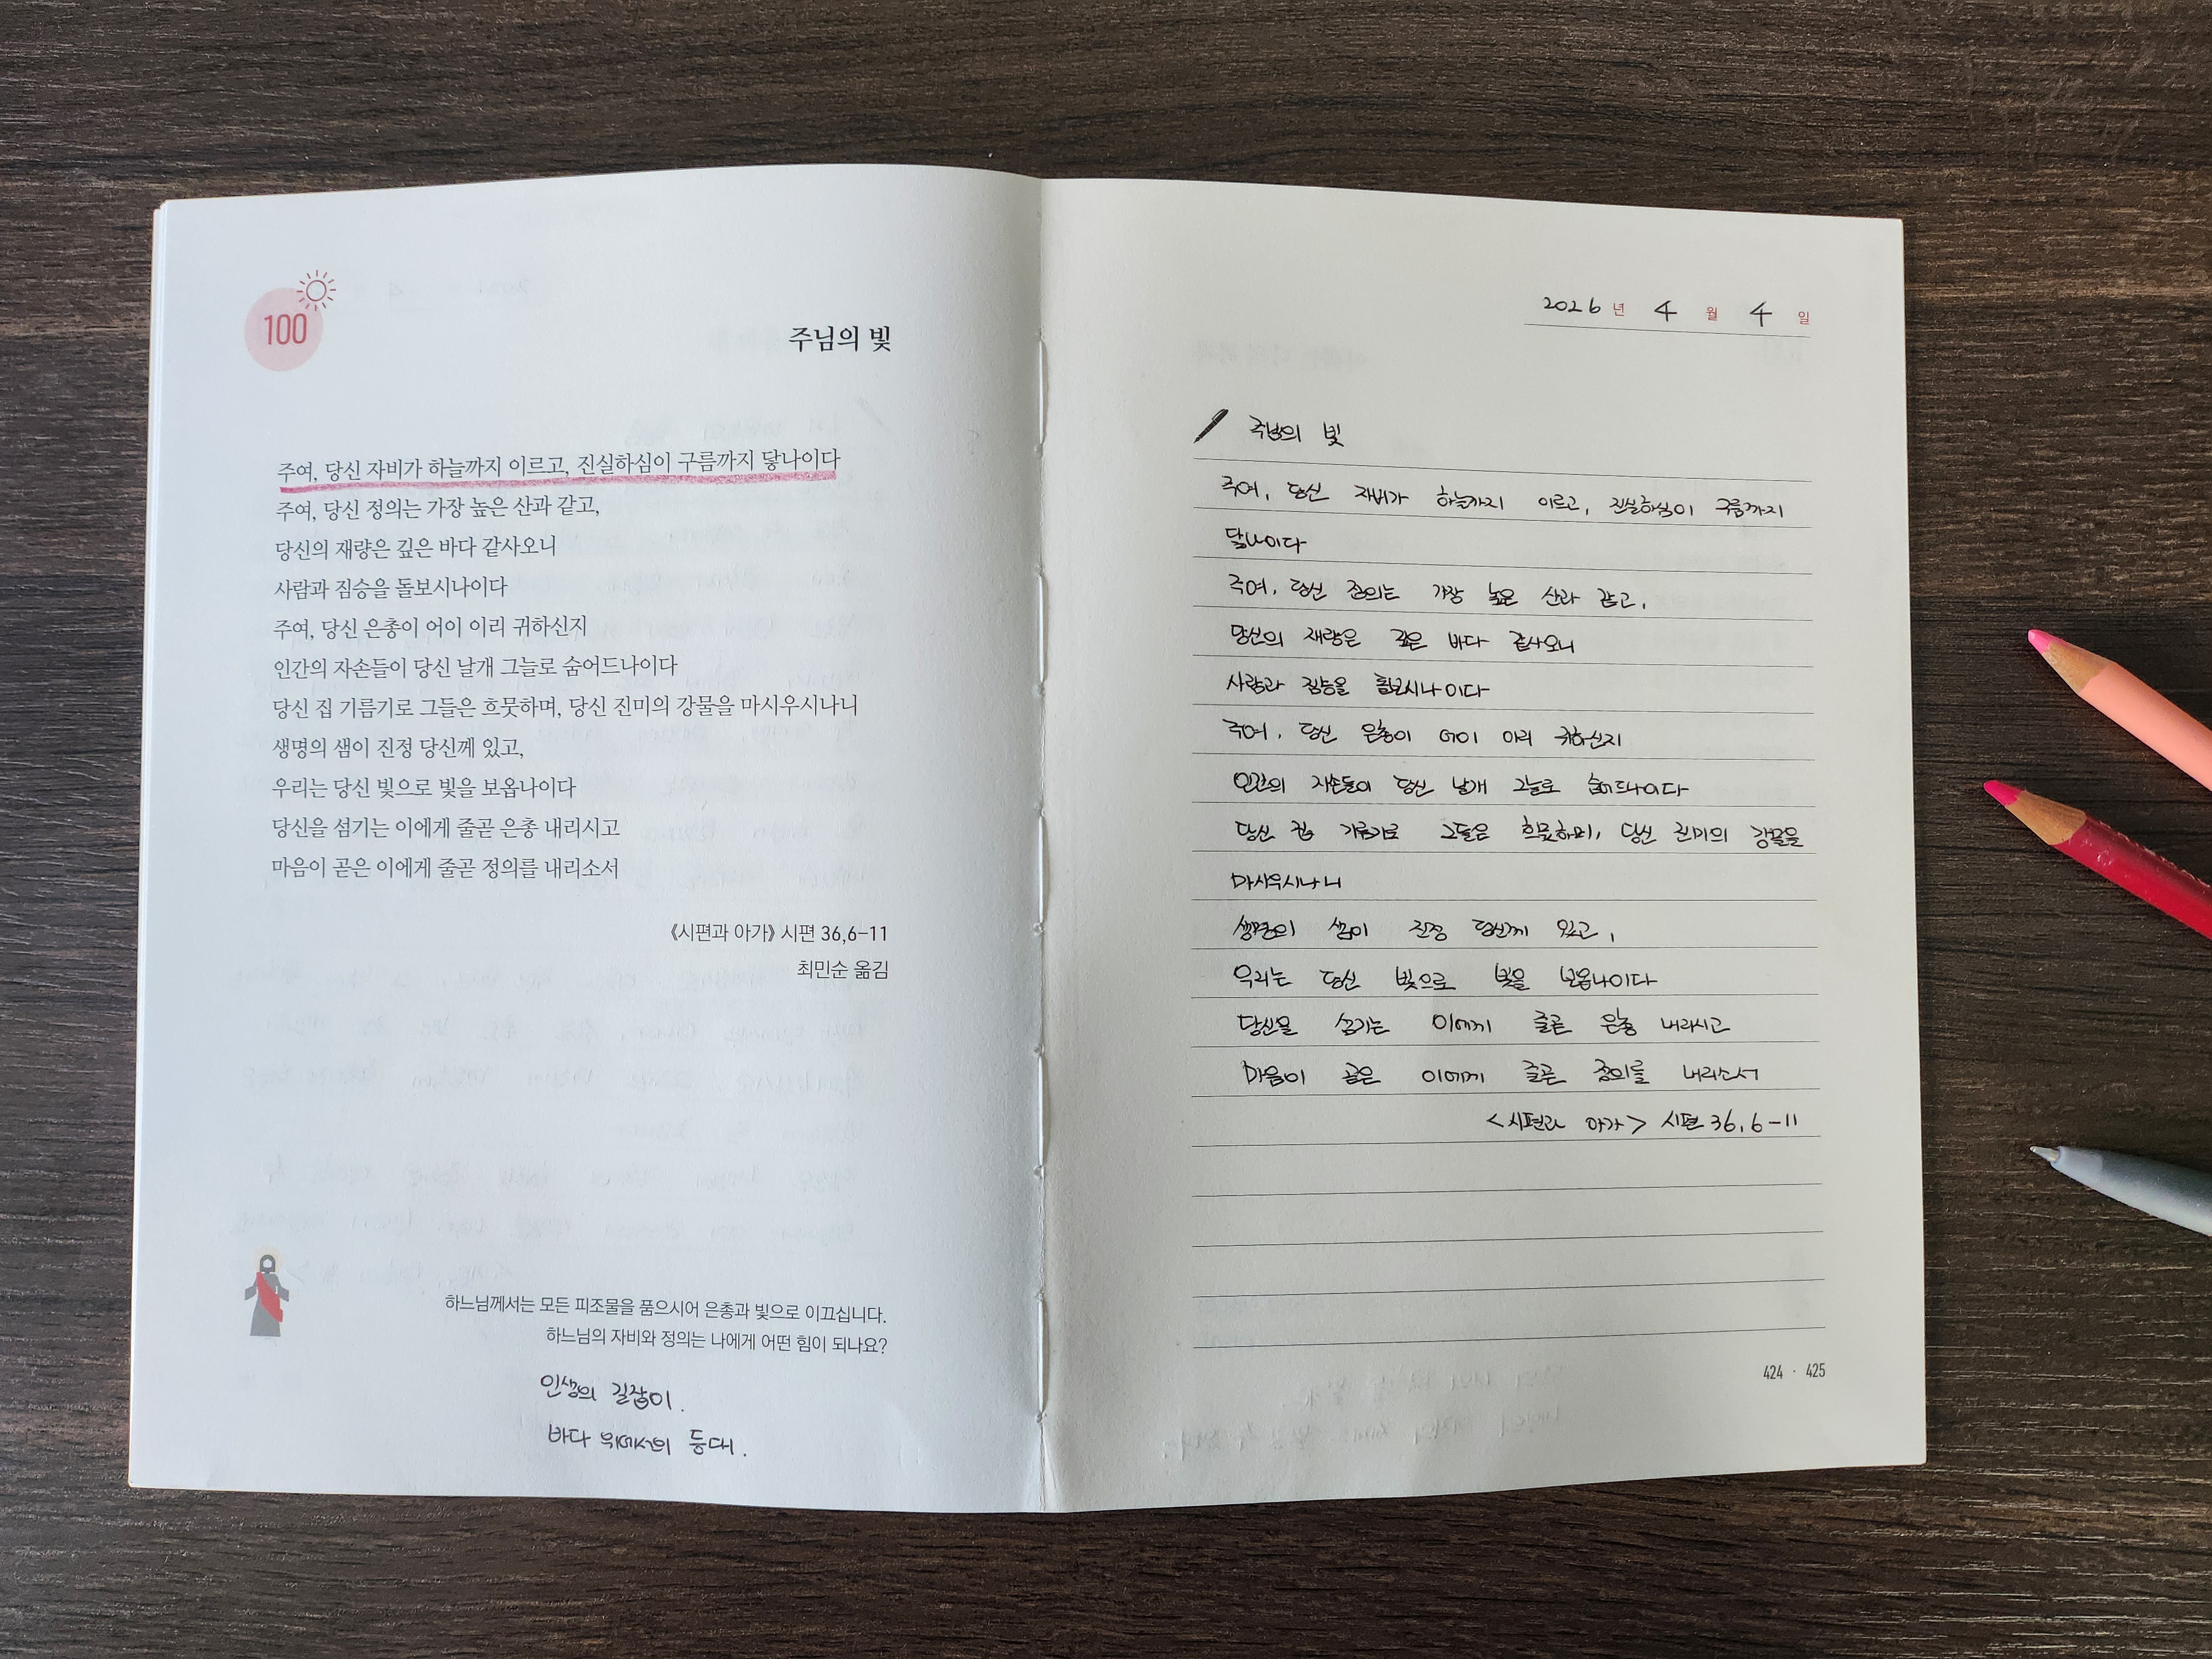 100
주님의 빛
주여, 당신 자비가 하늘까지 이르고, 진실하심이 구름까지 닿나이다
주여, 당신 정의는 가장 높은 산과 같고,
당신의 재량은 깊은 바다 같사오니
사람과 짐승을 돌보시나이다
주여, 당신 은총이 어이 이리 귀하신지
인간의 자손들이 당신 날개 그늘로 숨어드나이다
당신 집 기름기로 그들은 흐뭇하며, 당신 진미의 강물을 마시우시나니
생명의 샘이 진정 당신께 있고,
우리는 당신 빛으로 빛을 보옵나이다
당신을 섬기는 이에게 줄곧 은총 내리시고
마음이 곧은 이에게 줄곧 정의를 내리소서
《시편과 아가》 시편 36,6–11
최민순 옮김
하느님께서는 모든 피조물을 품으시어 은총과 빛으로 이끄십니다.
하느님의 자비와 정의는 나에게 어떤 힘이 되나요?
인생의 길잡이.
바다 위에서의 등대.
2026 년 4 월 4 일
주님의 빛
주여, 당신 자비가 하늘까지 이르고, 진실하심이 구름까지
닿나이다
주여, 당신 정의는 가장 높은 산과 같고,
당신의 재량은 깊은 바다 같사오니
사람과 짐승을 돌보시나이다
주여, 당신 은총이 어이 이리 귀하신지
인간의 자손들이 당신 날개 그늘로 숨어드나이다
당신 집 기름기로 그들은 흐뭇하며, 당신 진미의 강물을
마시우시나니
생명의 샘이 진정 당신께 있고,
우리는 당신 빛으로 빛을 보옵나이다
당신을 섬기는 이에게 줄곧 은총 내리시고
마음이 곧은 이에게 줄곧 정의를 내리소서
<시편과 아가> 시편 36,6-11
424 · 425